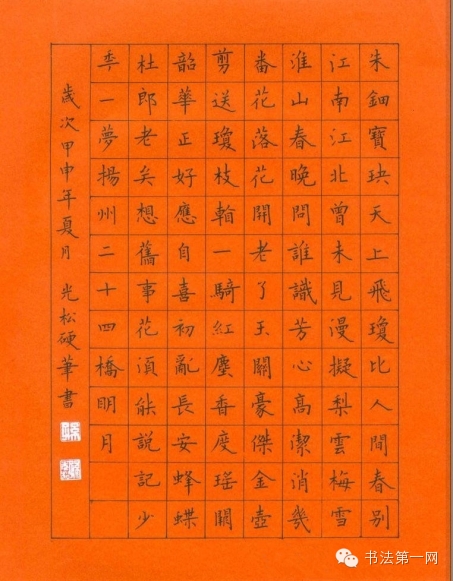 朱鈿寶玦天上飛瓊比人間春別
江南江北曾未見漫擬梨雲梅雪
淮山春晚問誰識芳心高潔消幾
番花落花開老了玉關豪傑金壺
剪送瓊枝一騎紅塵香度瑤闕
韶華正好應自喜初亂長安蜂蝶
杜郎老矣想舊事花須能說記少
秊一夢揚州二十四橋明月
歲次甲申年夏月 光松硬筆書
书法第一网